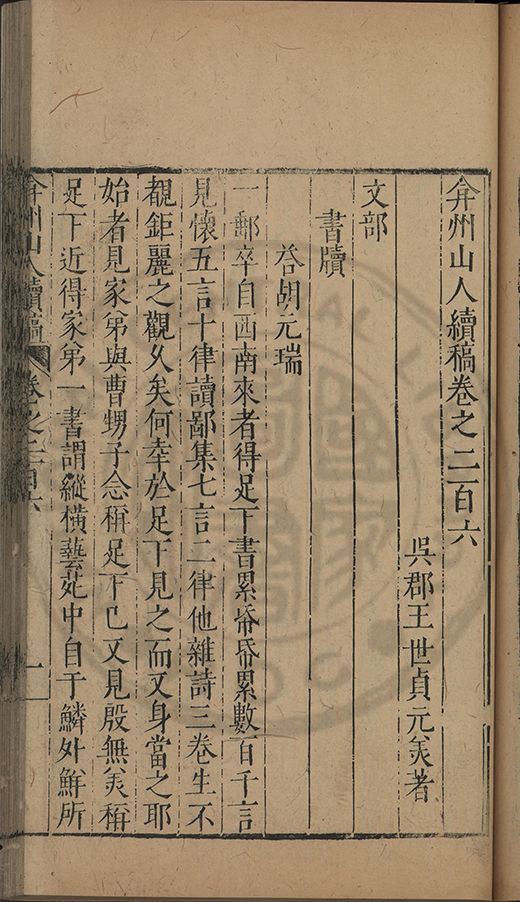 弇州山人續稿卷之二百六
吳郡王世貞元美著
文部
書牘
荅胡元瑞
一郵卒自西南來者得足下書累番番累數百千言
見懷五言十律讀鄙集七言二律他雜詩三卷生不
覩鉅麗之觀久矣何幸於足下見之而又身當之耶
始者見家弟與曹甥子念稱足下已又見殷無美稱
足下近得家弟一書謂縱橫藝苑中自于鱗外鮮所
弇州山人續稿 卷之二百六 一